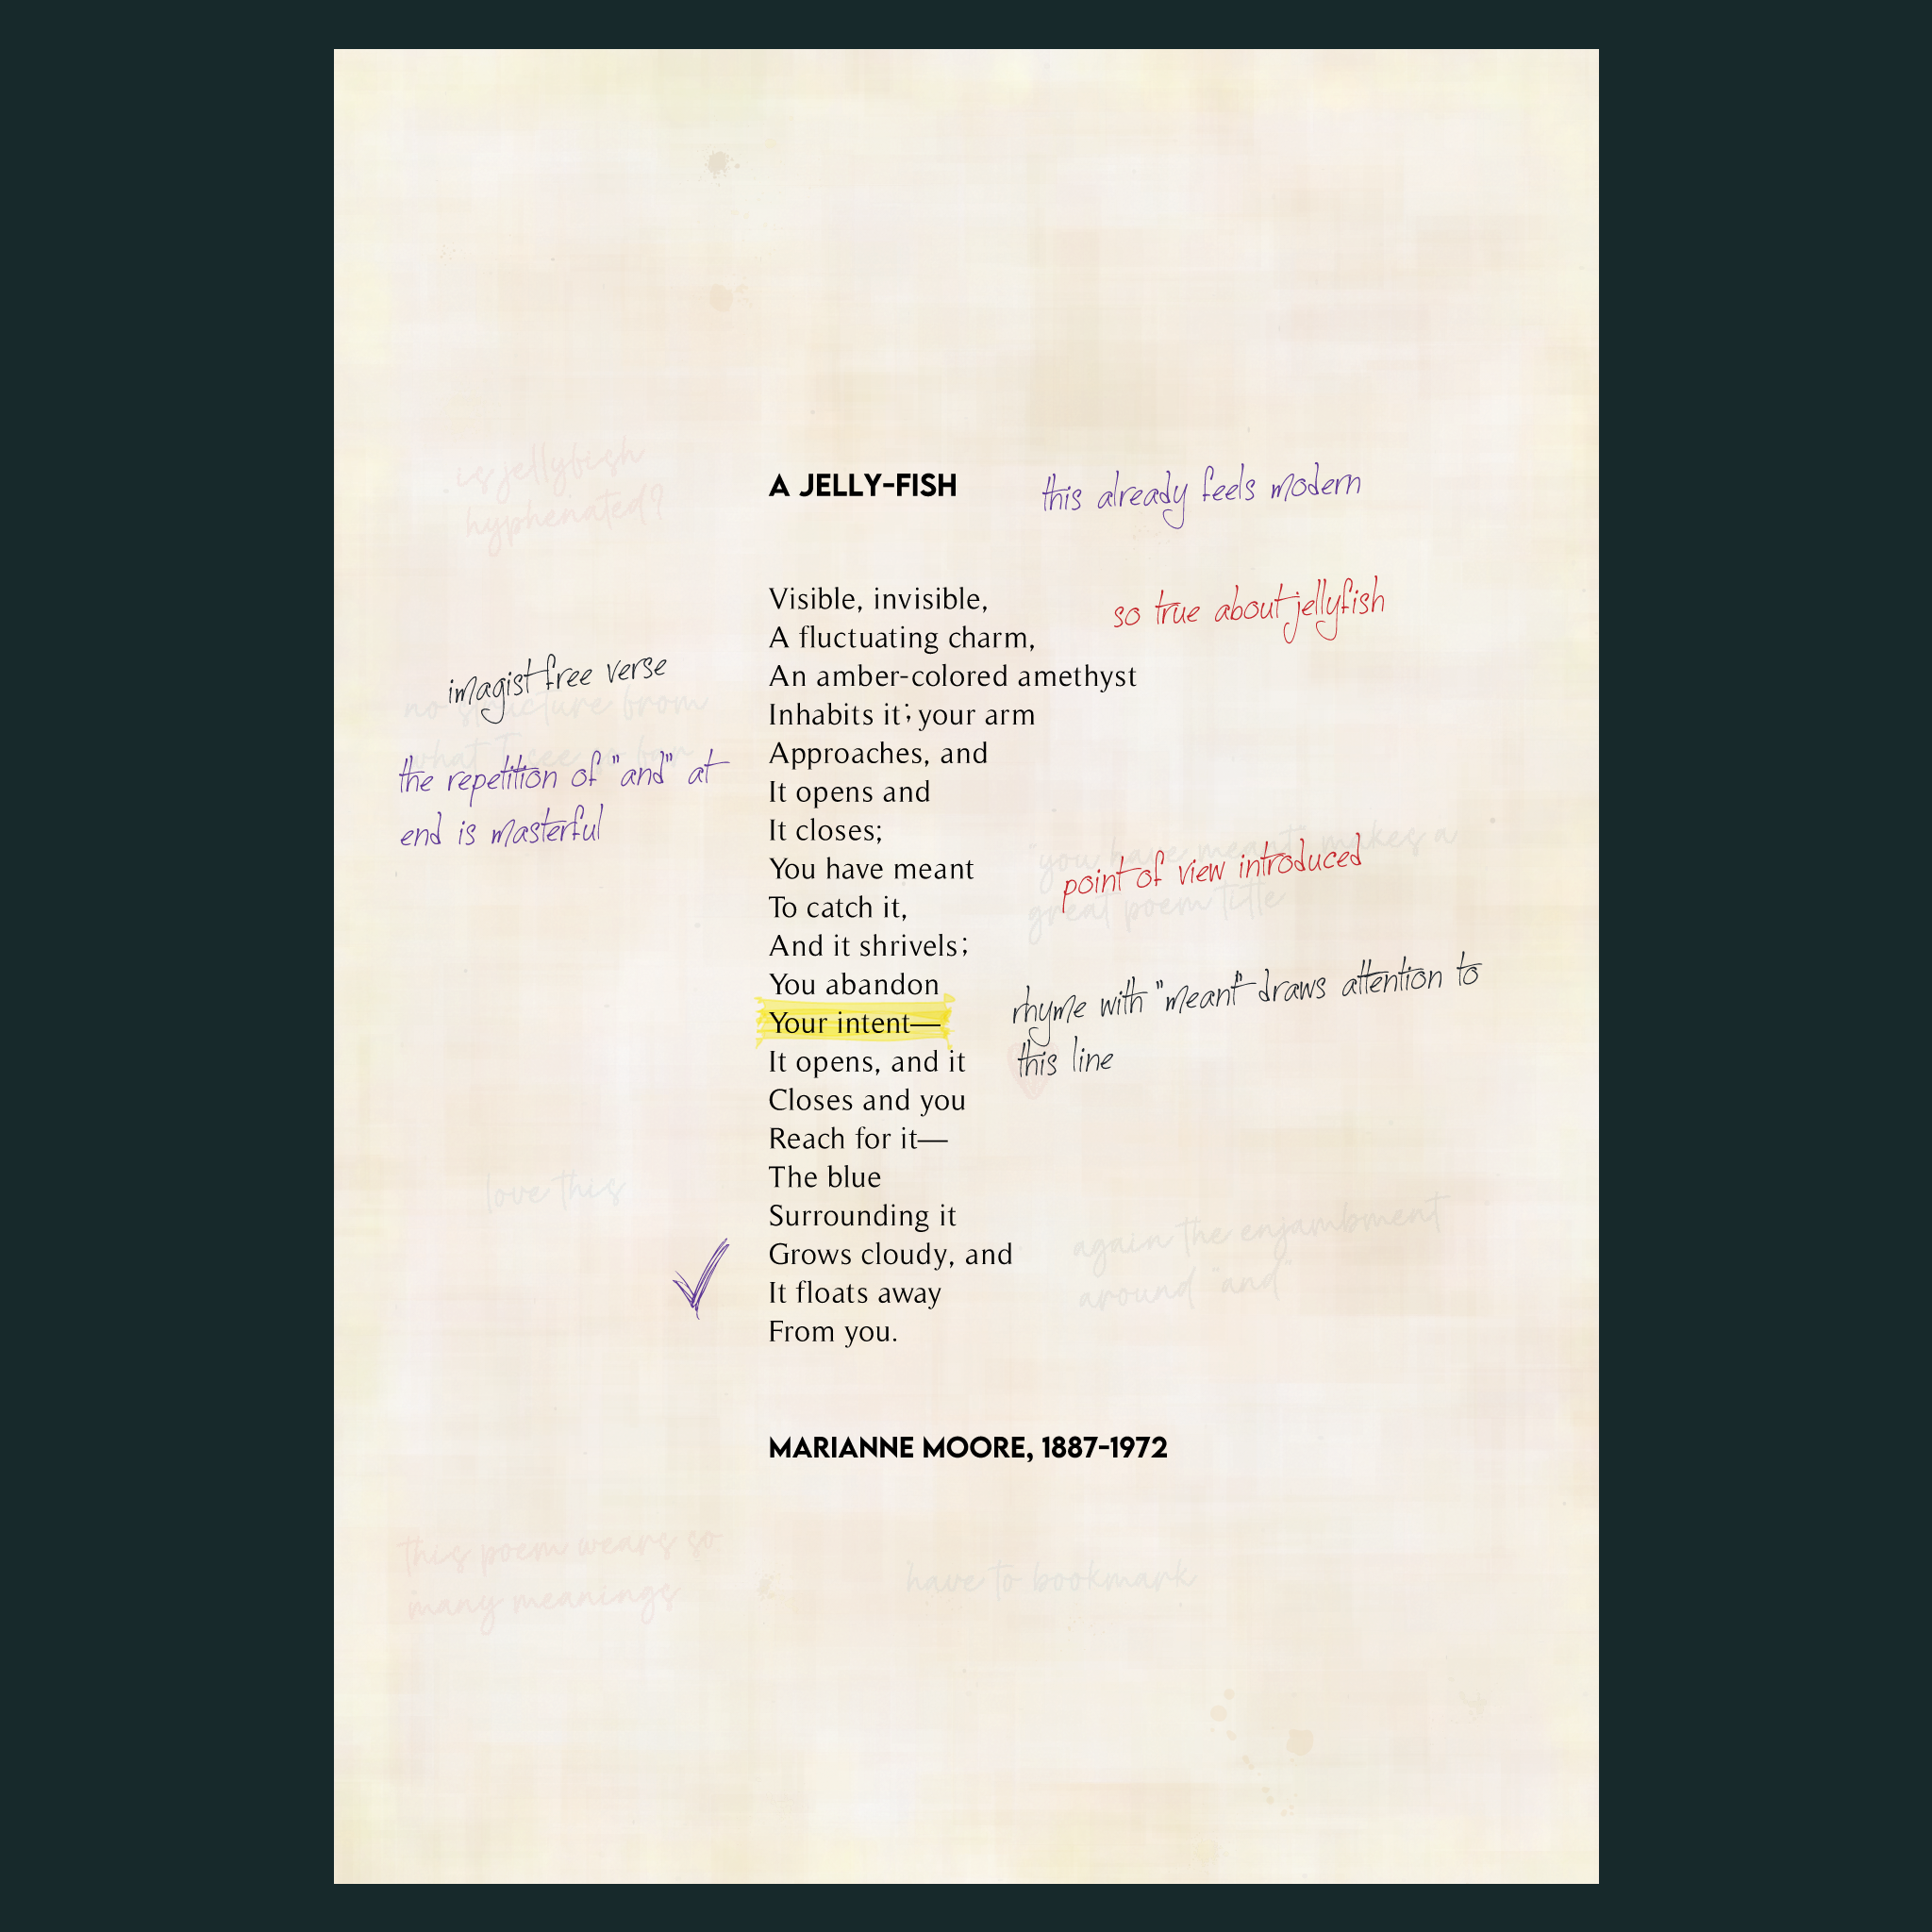 is jellyfish
hyphenated?
A JELLY-FISH
this already feels modern
Visible, invisible,
so true about jellyfish
A fluctuating charm,
imagist free verse
An amber-colored amethyst
no structure from
Inhabits it; your arm
what I see so far
Approaches, and
the repetition of "and" at
end is masterful
It opens and
It closes;
"you have meant" makes a
great poem title
point of view introduced
You have meant
To catch it,
And it shrivels;
You abandon
rhyme with "meant" draws attention to
this line
Your intent—
It opens, and it
Closes and you
Reach for it—
love this
The blue
Surrounding it
again the enjambment
around "and"
Grows cloudy, and
It floats away
From you.
MARIANNE MOORE, 1887-1972
this poem wears so
many meanings
have to bookmark